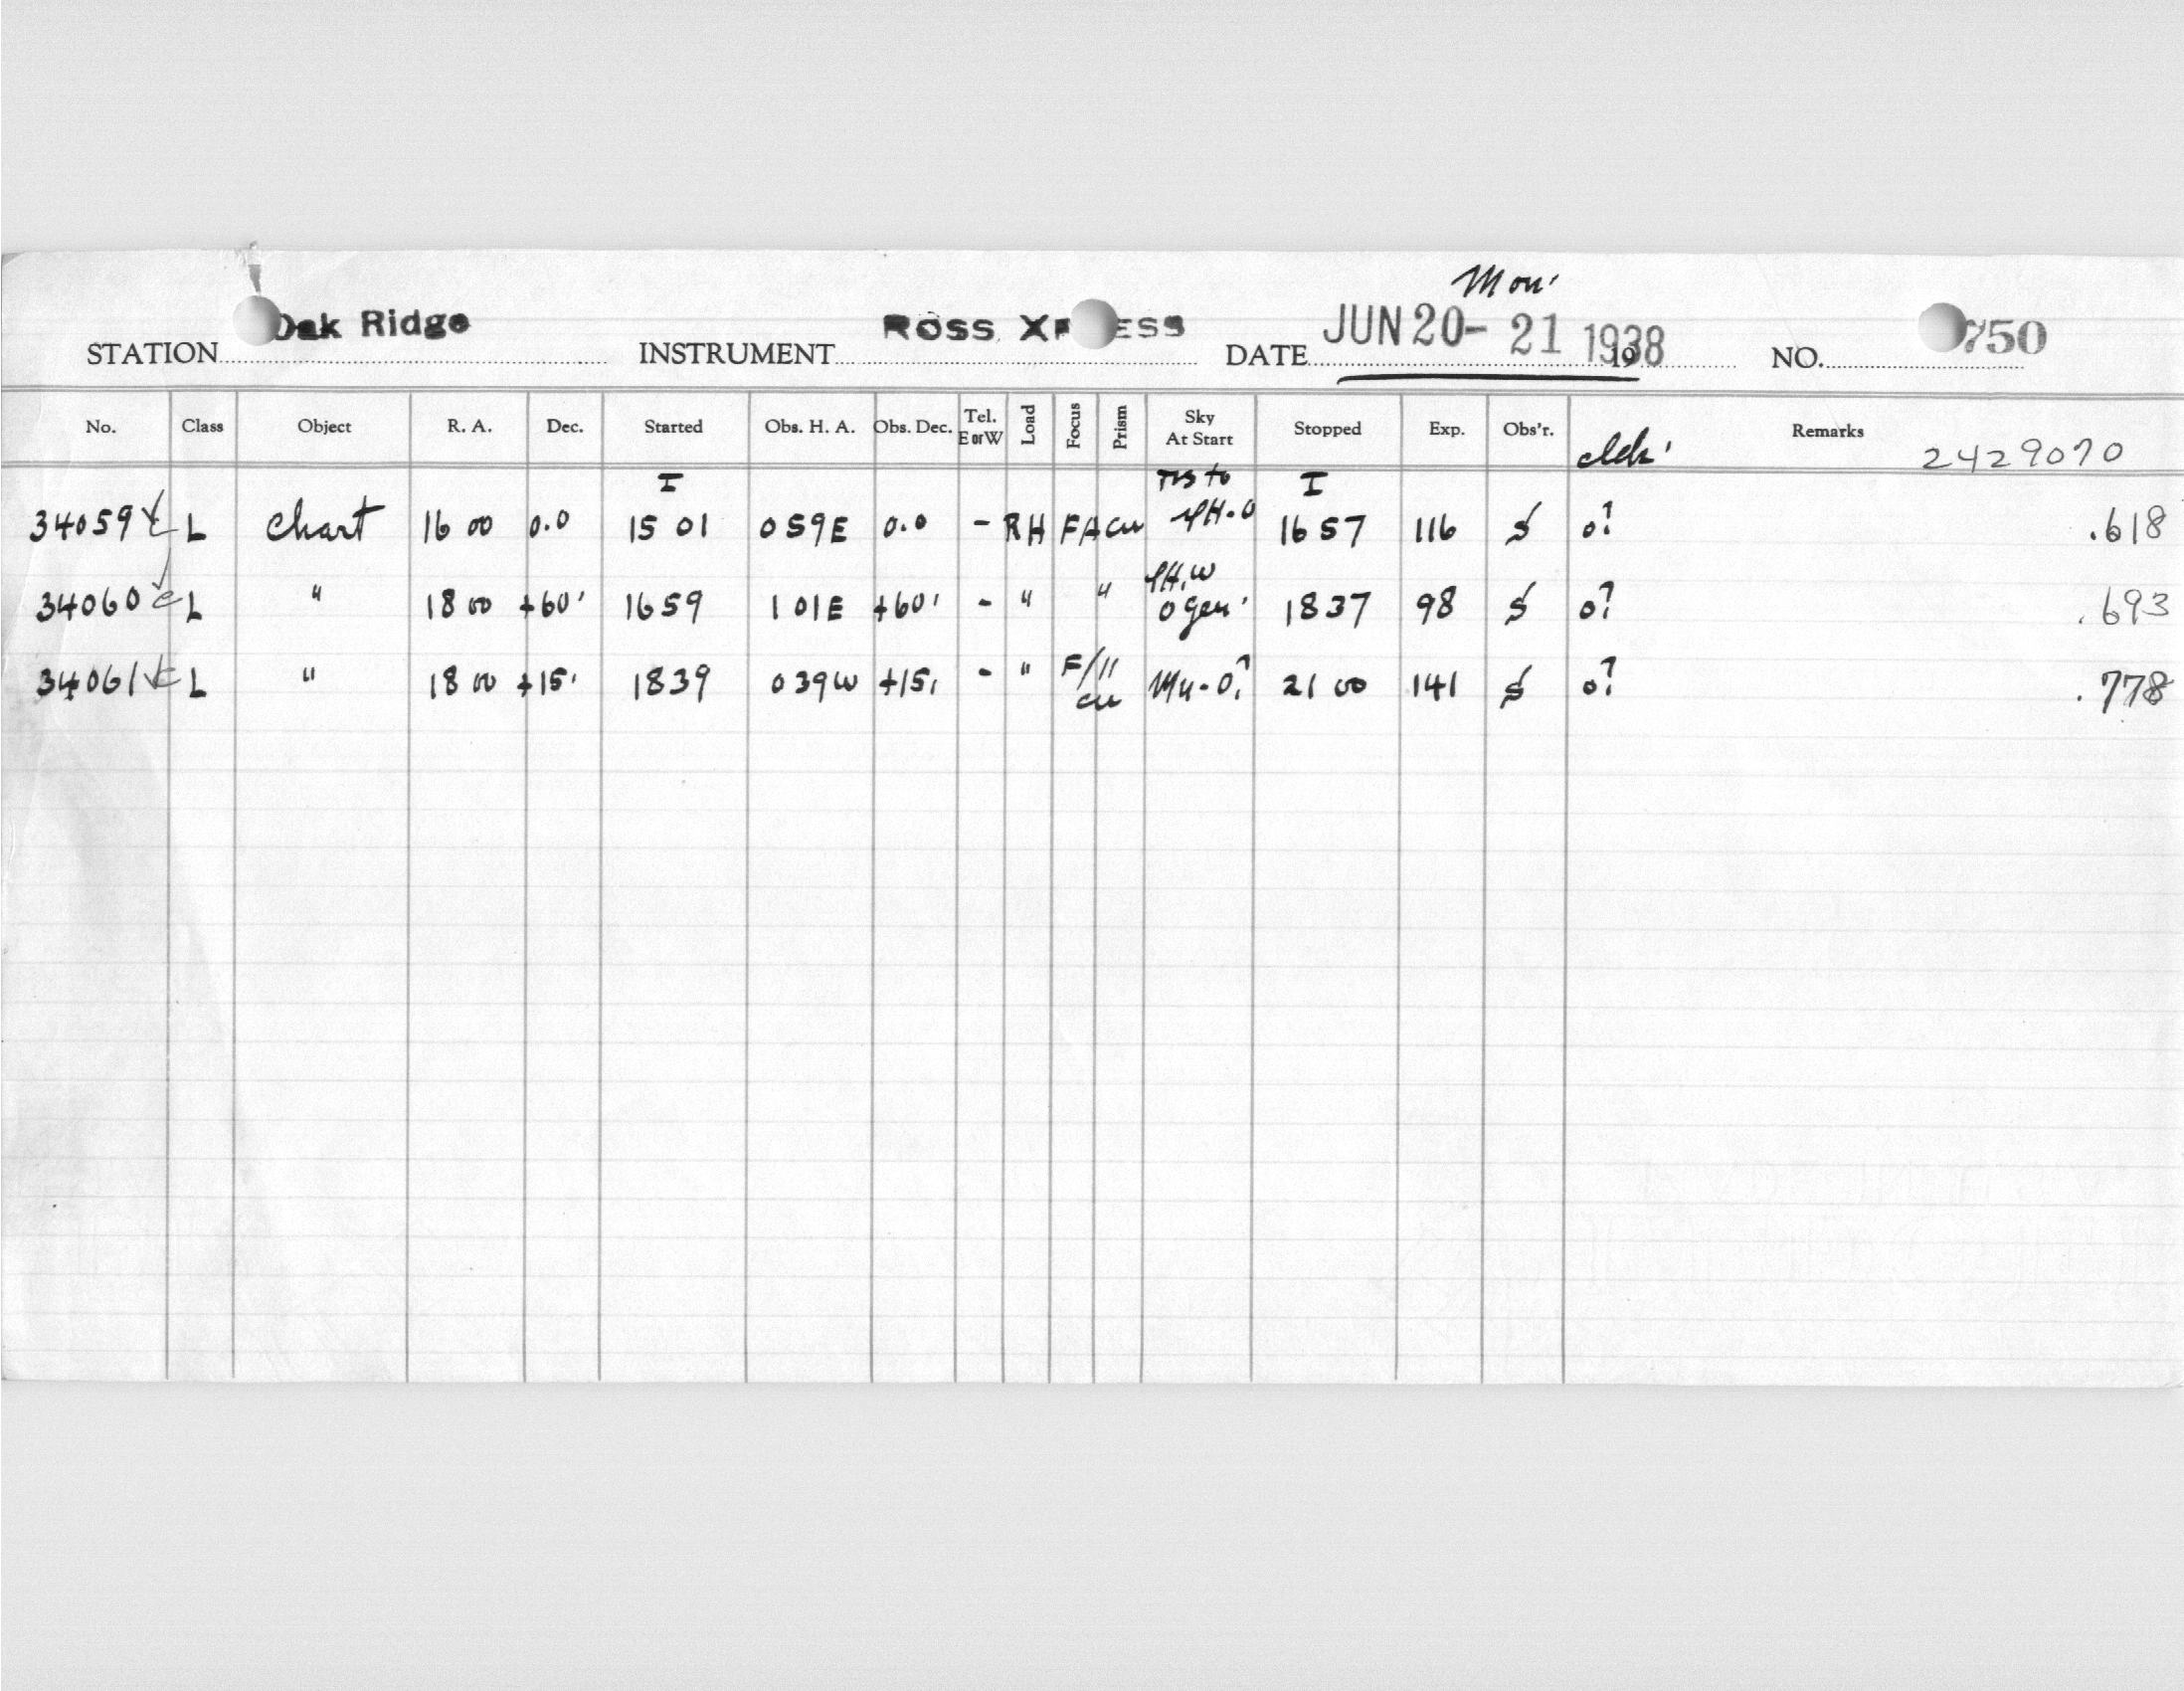 Mon.
STATION Oak Ridge INSTRUMENT ROSS XPRESS DATE JUN 20-21 1938 NO. 750
No. Class Object R. A. Dec. Started Obs. H. A. Obs. Dec. Tel. E or W Load Focus Prism Sky At Start Stopped Exp. Obs'r. Remarks 2429070
I I
34059 L Chart 16 00 0.0 15 01 0 59 E 0.0 - RH FA cu 16 57 116 S o? .618
34060 L " 18 00 +60. 16 59 1 01 E +60. - " " 18 37 98 S o? .693
34061 L " 18 00 +15. 18 39 0 39 W +15. - " F/11 cu 21 00 141 S o? .778